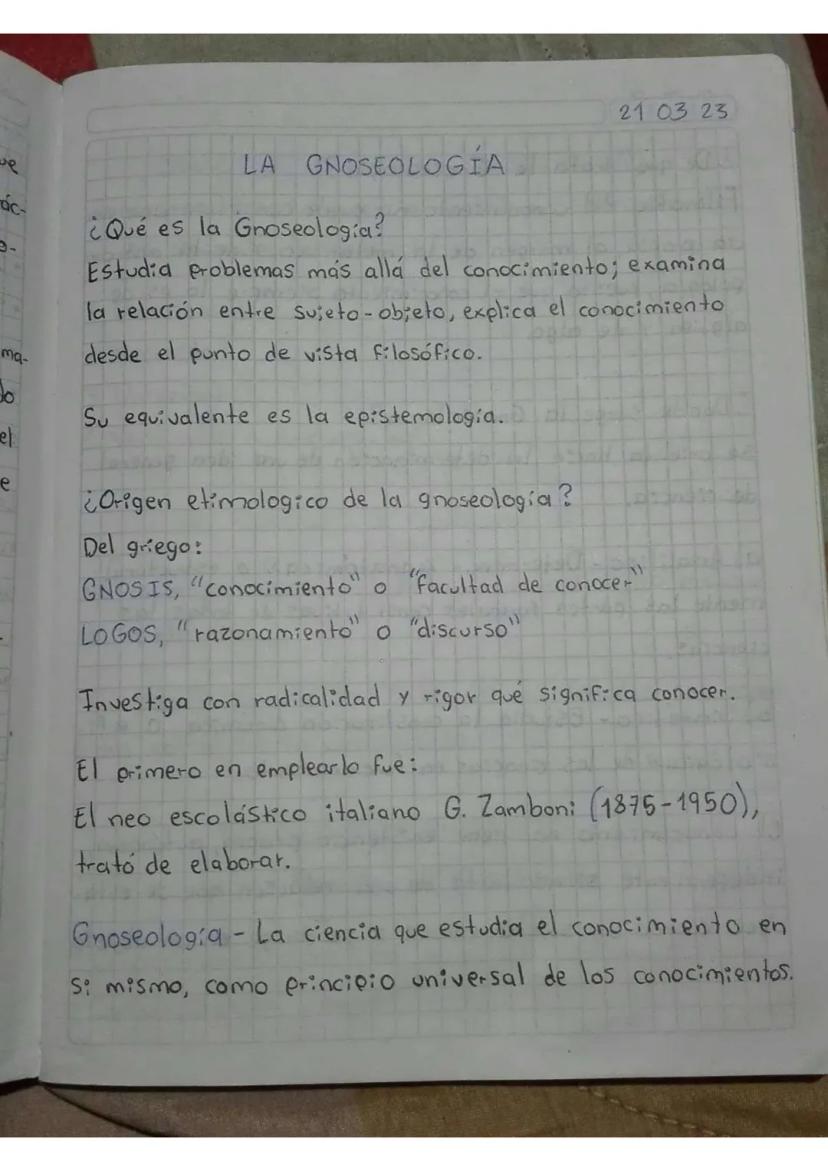 21 03 23
LA GNOSEOLOGÍA
¿Qué es la Gnoseología?
Estudia problemas más allá del conocimiento; examina
la relación entre sujeto-objeto, explica el conocimiento
desde el punto de vista filosófico.
Su equivalente es la epistemología.
¿Origen etimologico de la gnoseología?
Del griego:
GNOSIS, "conocimiento" o "facultad de conocer"
LOGOS, "razonamiento" o "discurso"
Investiga con radicalidad y rigor qué significa conocer.
El primero en emplearlo fue:
El neo escolástico italiano G. Zamboni (1875-1950),
trató de elaborar.
Gnoseología - La ciencia que estudia el conocimiento en
si mismo, como principio universal de los conocimientos.